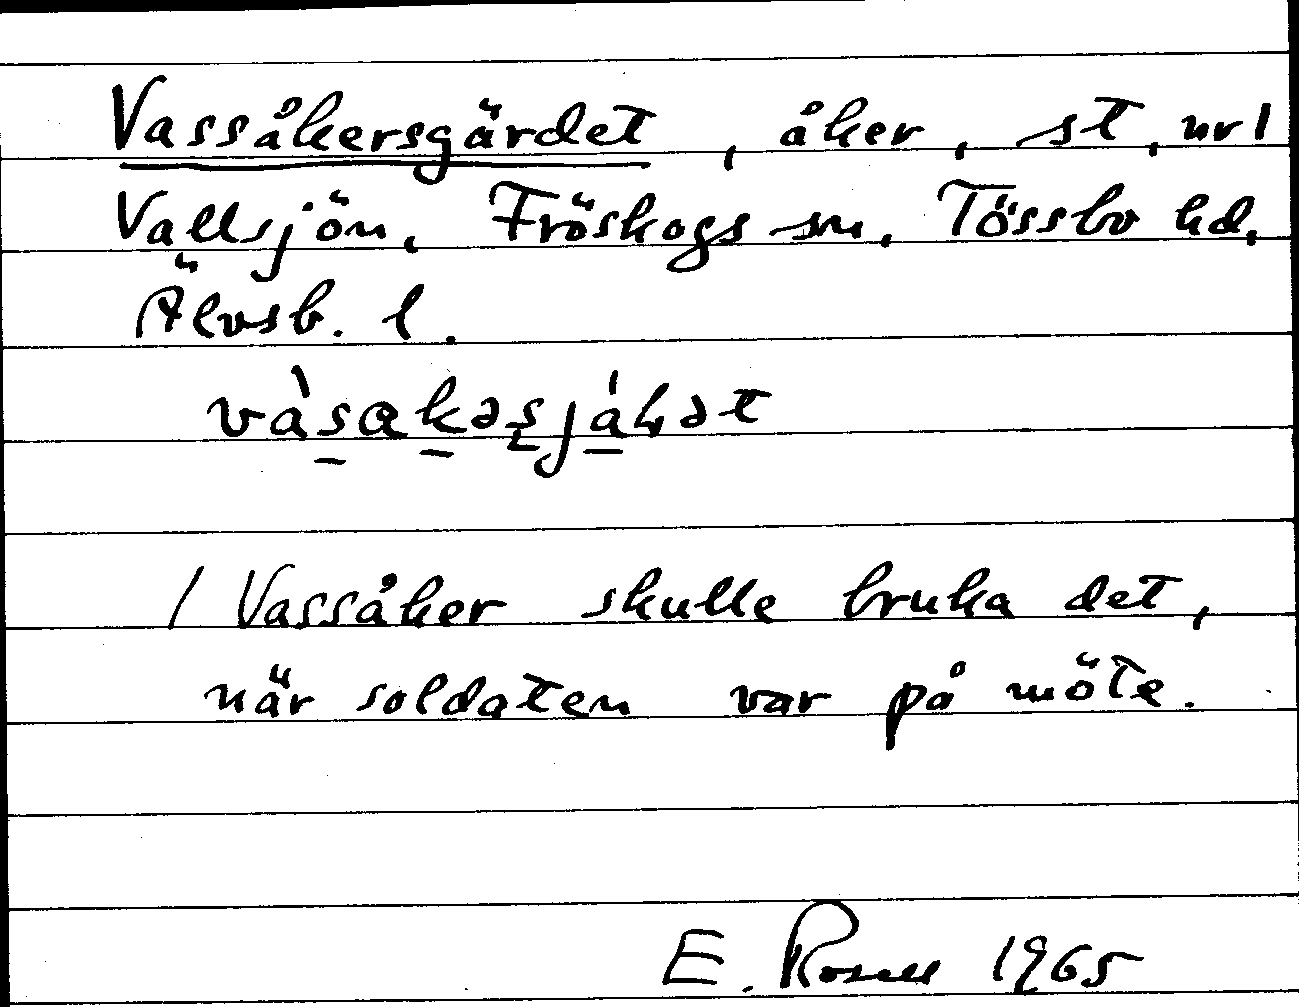 Vassåkersgärdet, åker, st, nr 1
Vallsjön, Fröskogs sn, Tössbo hd,
Älvsb. l.
/ Vassåker skulle bruka det,
när soldaten var på möte.
E. Rosell 1965